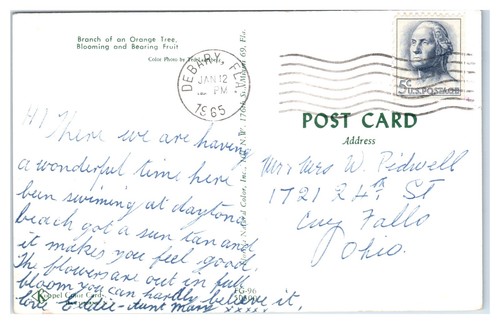 Branch of an Orange Tree,
Blooming and Bearing Fruit
Color Photo by
DEBARY, FLA.
JAN 12
PM
1965
5¢
U.S. POSTAGE
POST CARD
Address
Hi There we are having
a wonderful time here
been swiming at daytona
beach got a sun tan and
it makes you feel good.
The flowers are out in full
bloom you can hardly believe it.
love Eddie - Aunt Mary xxxxx
Mr & Mrs W. Pidwell
1721 24th St
Cuy Falls
Ohio.
Koppel Color Cards
FG-96